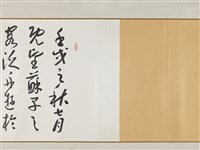 壬戌之秋七月
既望蘇子與
客泛舟遊於